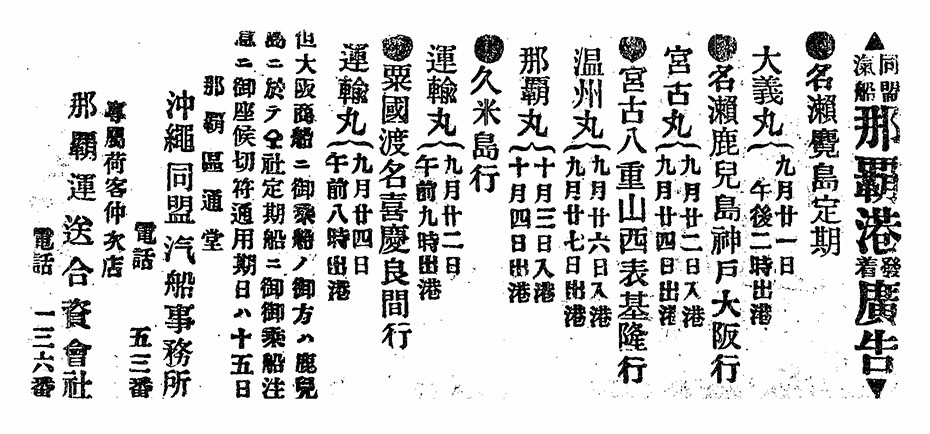 ▲同盟滊船那覇港發着廣告▼
●名瀨麑島定期
大義丸{九月廿一日
午後二時出港
●名瀨鹿兒島神戸大阪行
宮古丸{九月廿二日入港
九月廿四日出港
●宮古八重山西表基隆行
温州丸{九月廿六日入港
九月廿七日出港
那覇丸{十月三日入港
十月四日出港
●久米島行
運輸丸{九月廿二日
午前九時出港
●粟國渡名喜慶良間行
運輸丸{九月廿四日
午前八時出港
但大阪商船ニ御乘船ノ御方ハ鹿兒
島ニ於テ仝社定期船ニ御御乘船注
意ニ御座候切符通用期日ハ十五日
那覇區通堂
沖繩同盟汽船事務所
電話 五三番
專屬荷客仲次店
那覇運送合資會社
電話 一三六番